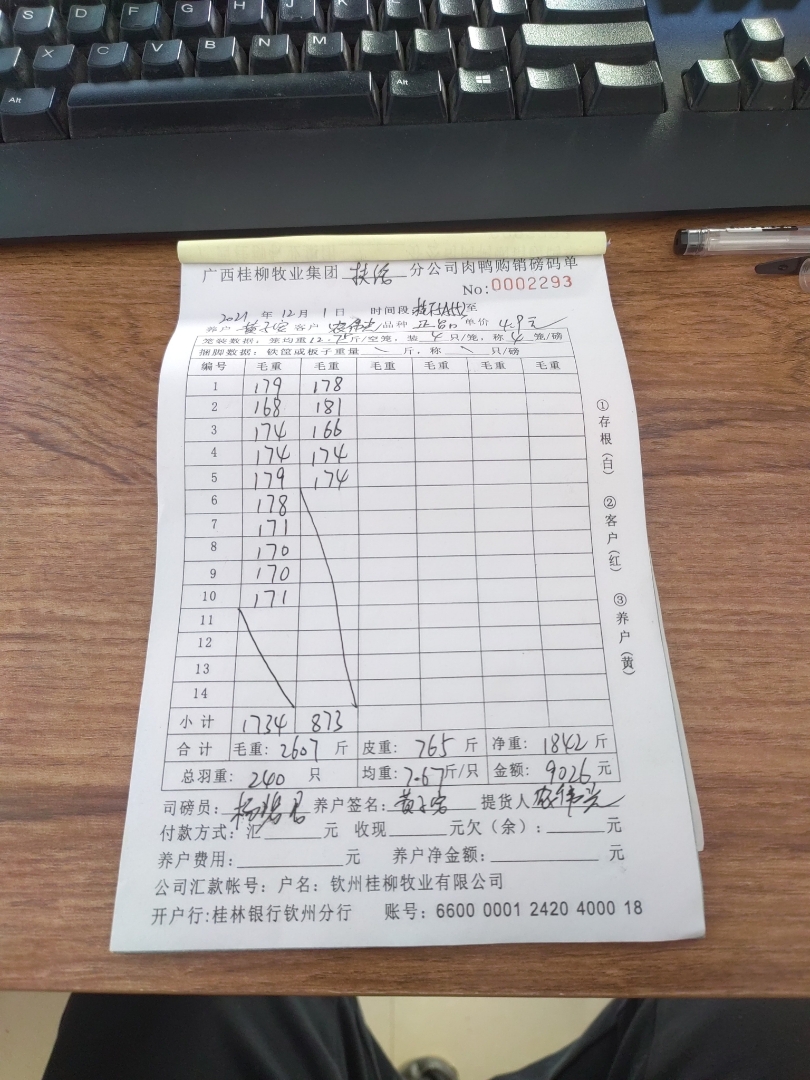 广西桂柳牧业集团 扶绥 分公司肉鸭购销磅码单
No:0002293
2021 年 12 月 1 日 时间段 至
养户 客户 品种 单价 4.9元
笼装数据: 笼均重12.75斤/空笼, 装 4 只/笼, 称 4 笼/磅
捆脚数据: 铁筐或板子重量 \ 斤, 称 \ 只/磅
编号 毛重 毛重 毛重 毛重 毛重 毛重
1 179 178
2 168 181
3 174 166
4 174 174
5 179 174
6 178
7 171
8 170
9 170
10 171
11
12
13
14
小计 1734 873
合计 毛重: 2607 斤 皮重: 765 斤 净重: 1842 斤
总羽重: 240 只 均重: 7.67斤/只 金额: 9026 元
司磅员: 养户签名: 提货人
付款方式: 汇______元 收现______元欠(余): ______元
养户费用: ______元 养户净金额: ______元
公司汇款帐号: 户名: 钦州桂柳牧业有限公司
开户行:桂林银行钦州分行 账号: 6600 0001 2420 4000 18
①存根(白) ②客户(红) ③养户(黄)
Alt
S D F G H J K L
X C V B N M
Alt